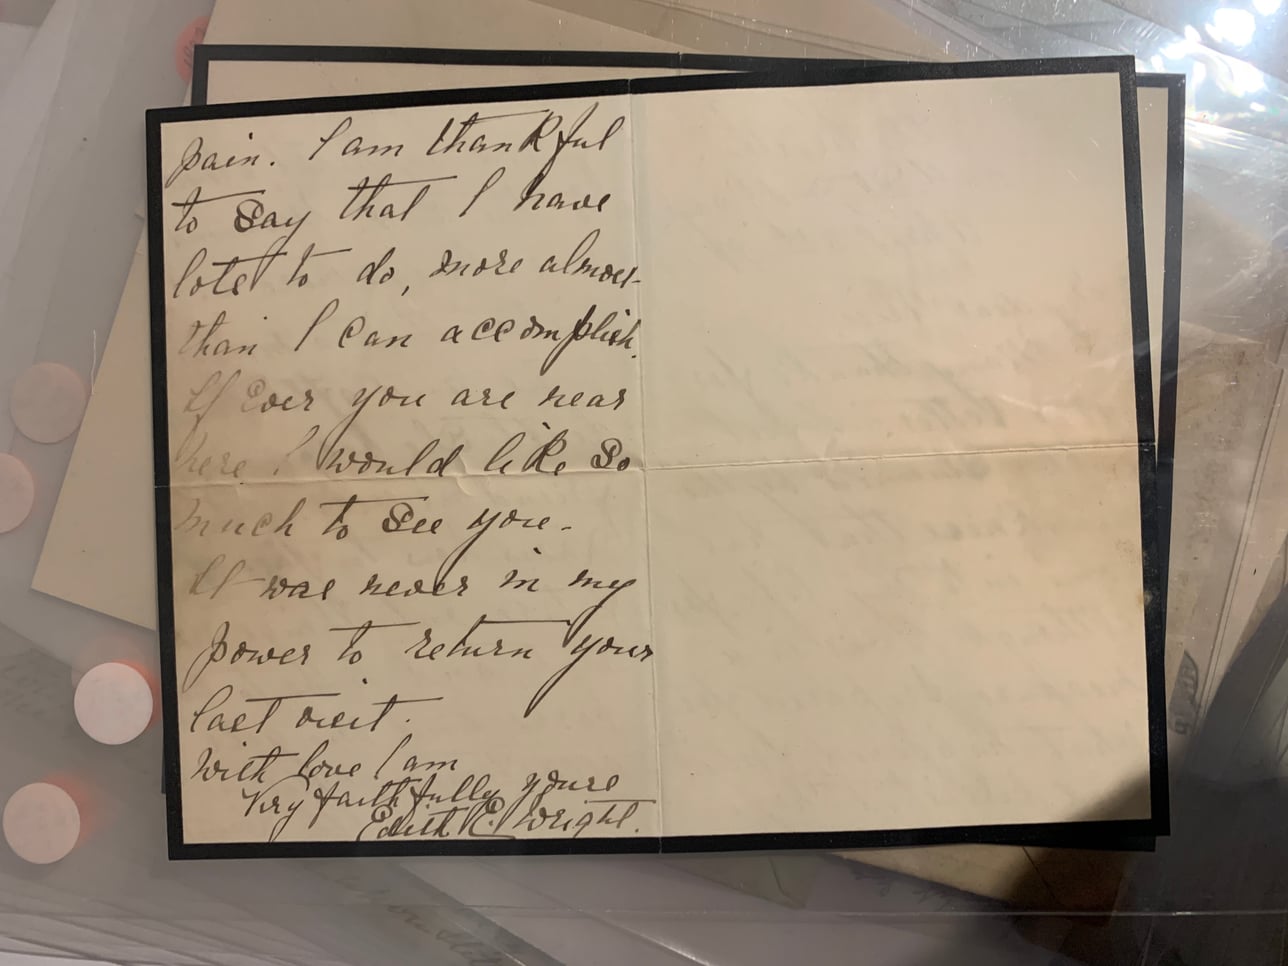 pain. I am thankful
to say that I have
lots to do, more almost
than I can accomplish.
If Ever you are near
here I would like so
much to see you-
It was never in my
power to return your
last visit.
With love I am
Very faithfully yours
Edith E. Wright.